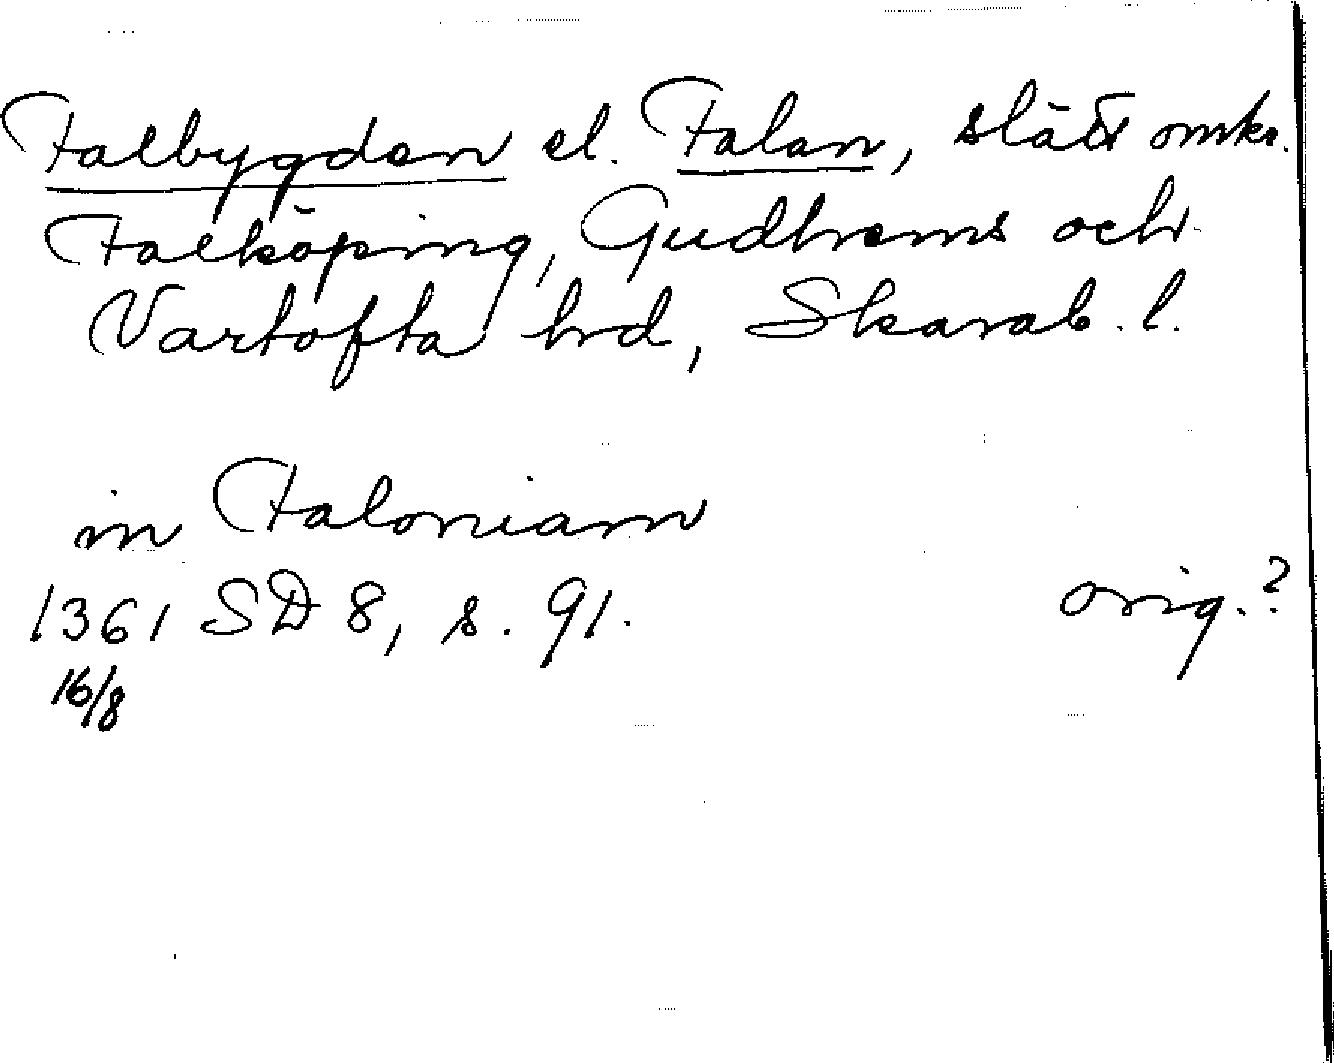 Falbygden el. Falan, slätt omkr.
Falköping, Gudhems och
Vartofta hrd, Skarab. l.
in Faloniam
1361 SD 8, s. 91. orig.?
16/8